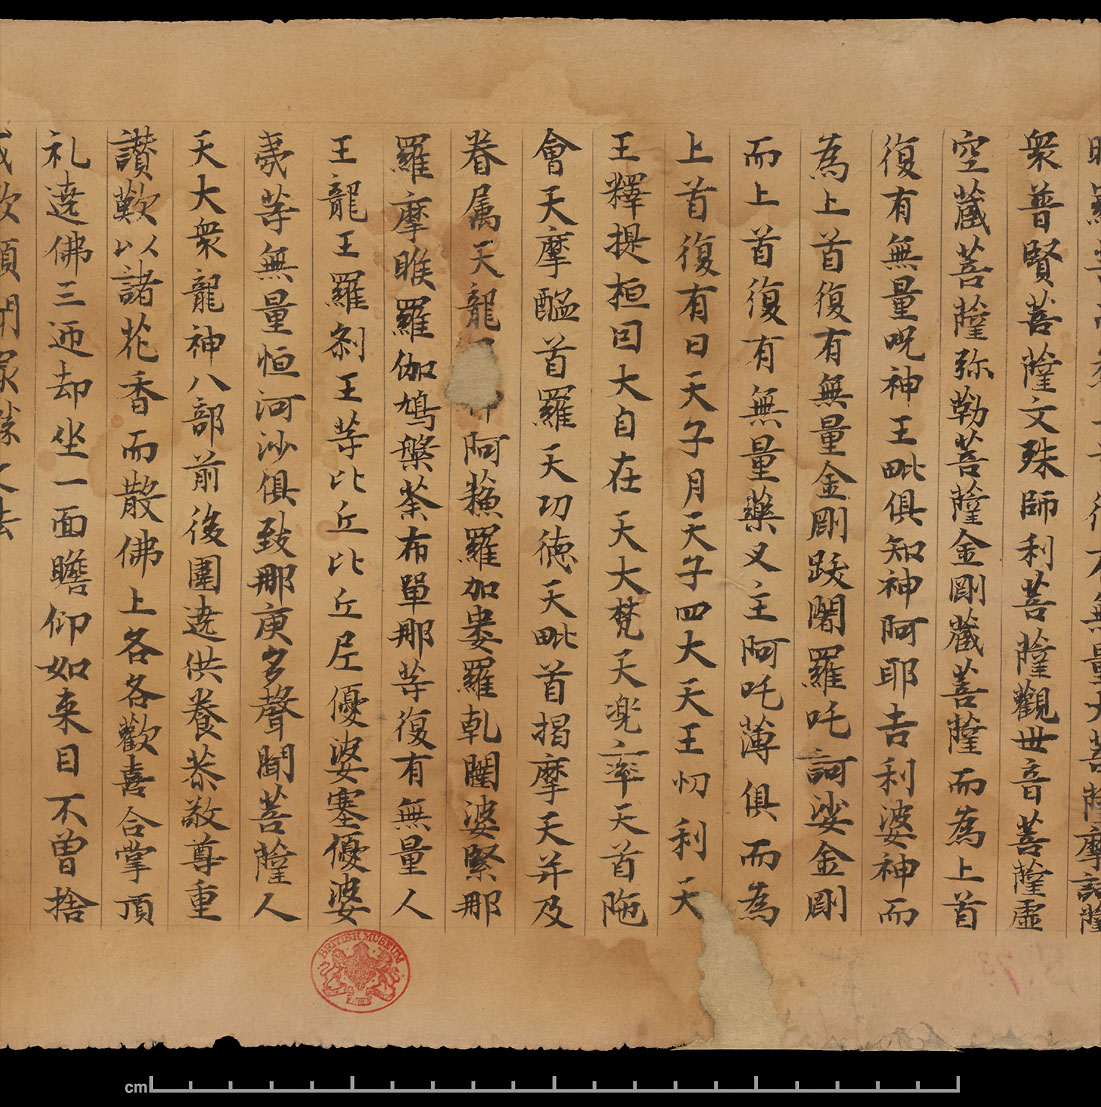 無量大菩薩摩訶薩
衆普賢菩薩文殊師利菩薩觀世音菩薩虛
空藏菩薩弥勒菩薩金剛藏菩薩而為上首
復有無量呪神王毗俱知神阿耶吉利婆神而
為上首復有無量金剛跋闍羅吒訶娑金剛
而上首復有無量藥叉主阿吒薄俱而為
上首復有日天子月天子四大天王忉利天
王釋提桓因大自在天大梵天兜率天首陁
會天摩醯首羅天功徳天毗首揭摩天并及
眷属天龍神阿蘓羅加婁羅乹闥婆緊那
羅摩睺羅伽鳩槃荼布單那等復有無量人
王龍王羅剎王等比丘比丘尼優婆塞優婆
夷等無量恒河沙俱致那庾多聲聞菩薩人
天大衆龍神八部前後圍遶供養恭敬尊重
讃歎以諸花香而散佛上各各歡喜合掌頂
礼遶佛三迊却坐一面瞻仰如来目不曾捨
BRITISH MUSEUM
cm